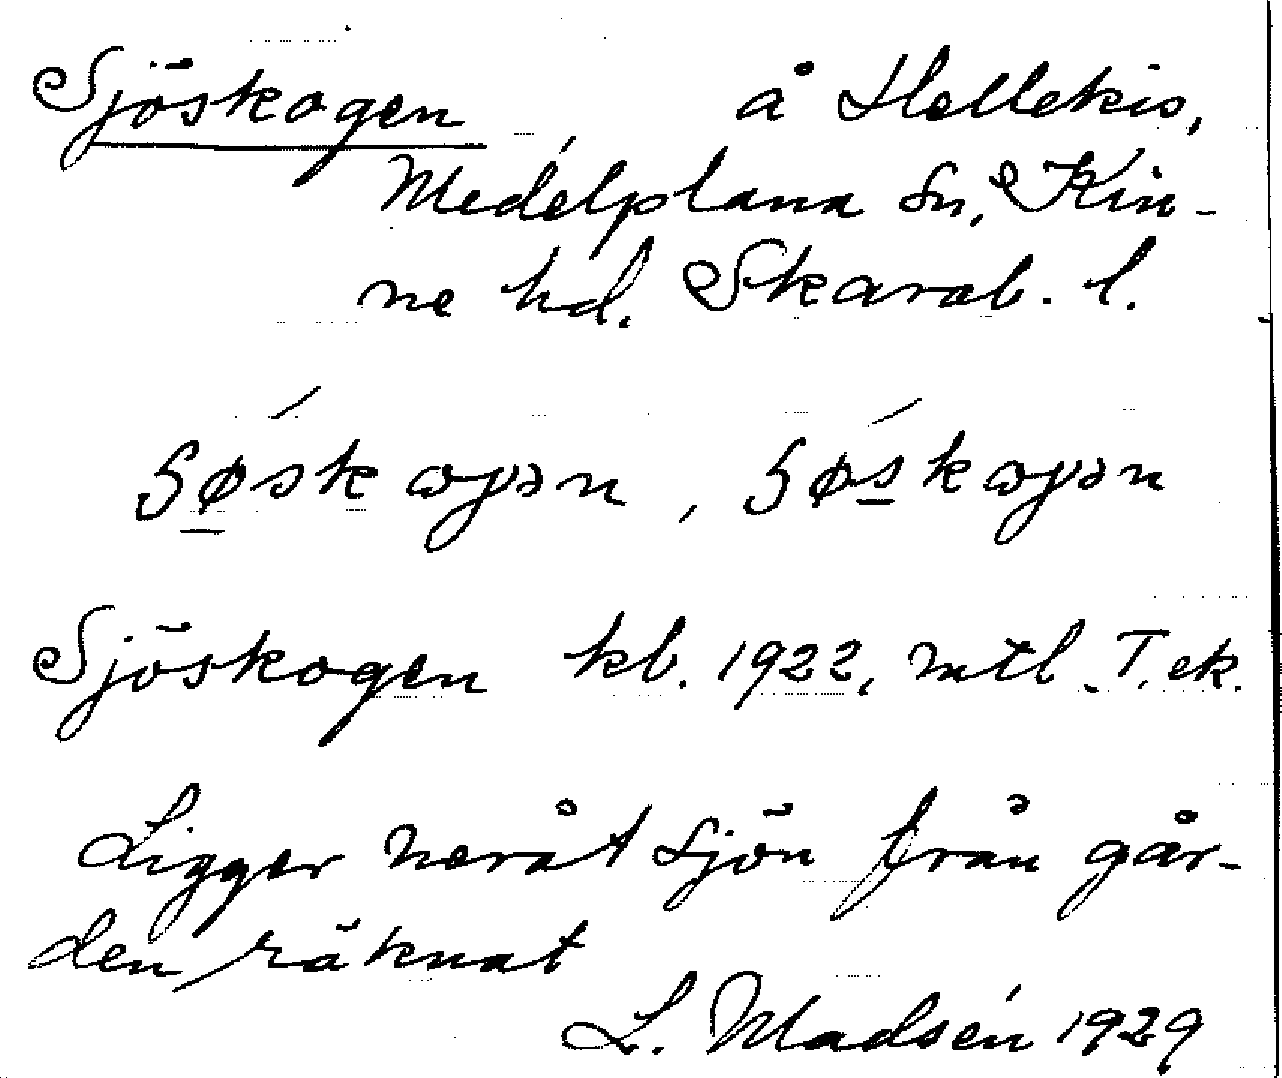 Sjöskogen å Hellekis,
Medelplana Sn, Kin-
ne hd. Skarab. l.
Sjöskogen kb. 1922, mtl. T. ek.
Ligger neråt sjön från går-
den räknat
L. Madsén 1929